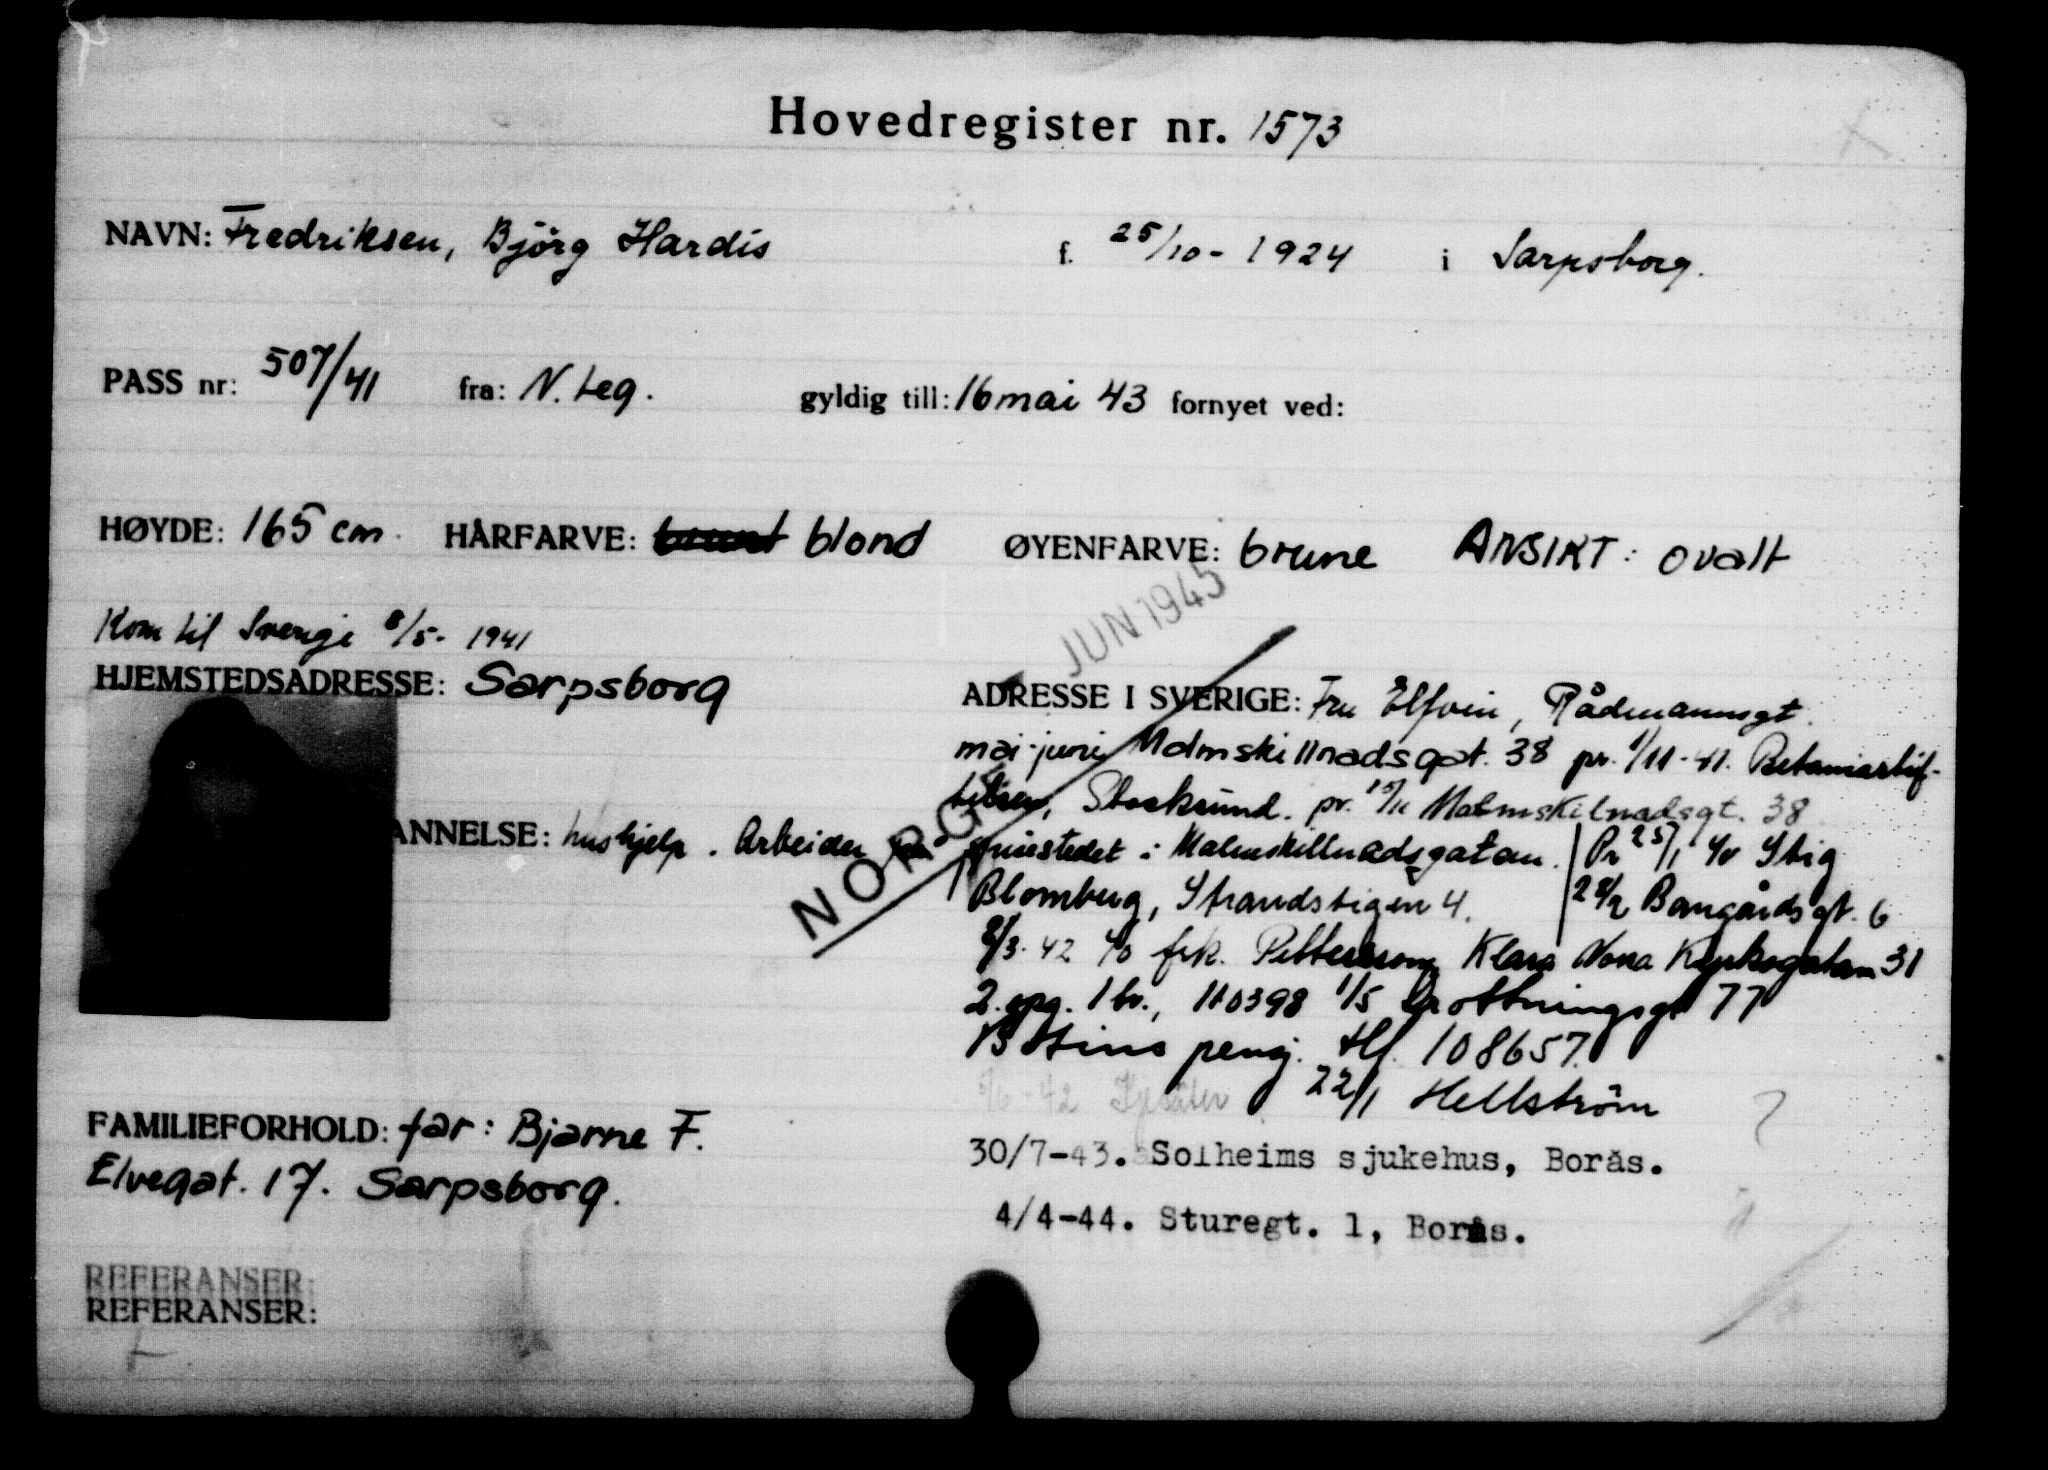 Hovedregister nr. 1573
NAVN: Fredriksen, Bjørg Hardis f. 25/10 - 1924 i Sarpsborg.
PASS nr: 507/41 fra: N. Leg. gyldig till: 16 mai 43 fornyet ved:
HØYDE: 165 cm. HÅRFARVE: blond ØYENFARVE: brune ANSIKT: ovalt
JUN 1945
Kom til Sverige 8/5 - 1941
HJEMSTEDSADRESSE: Sarpsborg
ANNELSE: hushjelp. Arbeider
NORGE
ADRESSE I SVERIGE: Fru Elfvin, Rådmannsgt.
mai-juni Malmskillnadsgat. 38 pr. 1/11-41.
Stocksund. pr. 15/11 Malmskilnadsgt. 38
spisestedet i Malmskillnadsgatan. Pr 25/1 c/o Stig
Blomberg, Strandstigen 4. 28/2 Bangårdsgt. 6
8/3-42 c/o frk. Pettersson, Klara Norra Kyrkogatan 31
2. opg. 1 tr., 110398 1/5 Drottningsgt 77
pensj. tlf. 108657.
22/1 Hellström
30/7-43. Solheims sjukehus, Borås.
4/4-44. Sturegt. 1, Borås.
FAMILIEFORHOLD: far: Bjarne F.
Elvegat. 17. Sarpsborg.
REFERANSER:
REFERANSER: